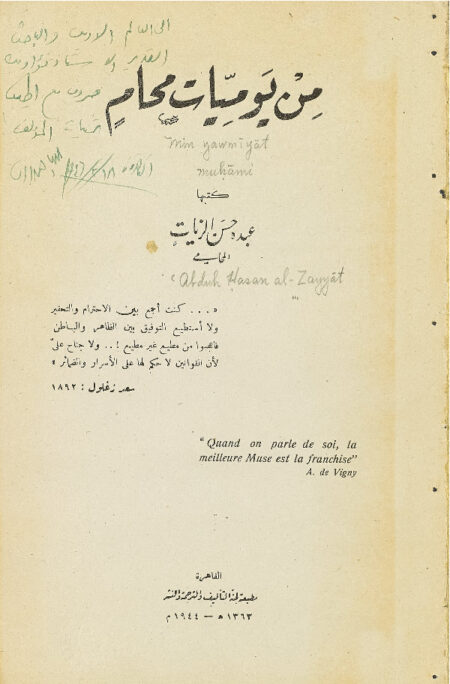 الى العالم المدرس والباحث
القدير الاستاذ فؤاد
مع اطيب
المؤلف
القاهرة
مِنْ يَوميّات محامٍ
min yawmīyāt
muḥāmī
كتبها
عبده حسَن الزيات
المحامي
ʿAbduh Ḥasan al-Zayyāt
« ... كنت أجمع بين الاحترام والتحقير
ولا أستطيع التوفيق بين الظاهر والباطن
مطيع غير مطيع ! .. ولا جناح علىّ
لأن القوانين لا حكم لها على الأسرار والضمائر »
سعد زغلول : ١٨٩٢
"Quand on parle de soi, la
meilleure Muse est la franchise"
A. de Vigny
القاهرة
مطبعة لجنة التأليف والترجمة والنشر
١٣٦٣ ه — ١٩٤٤ م